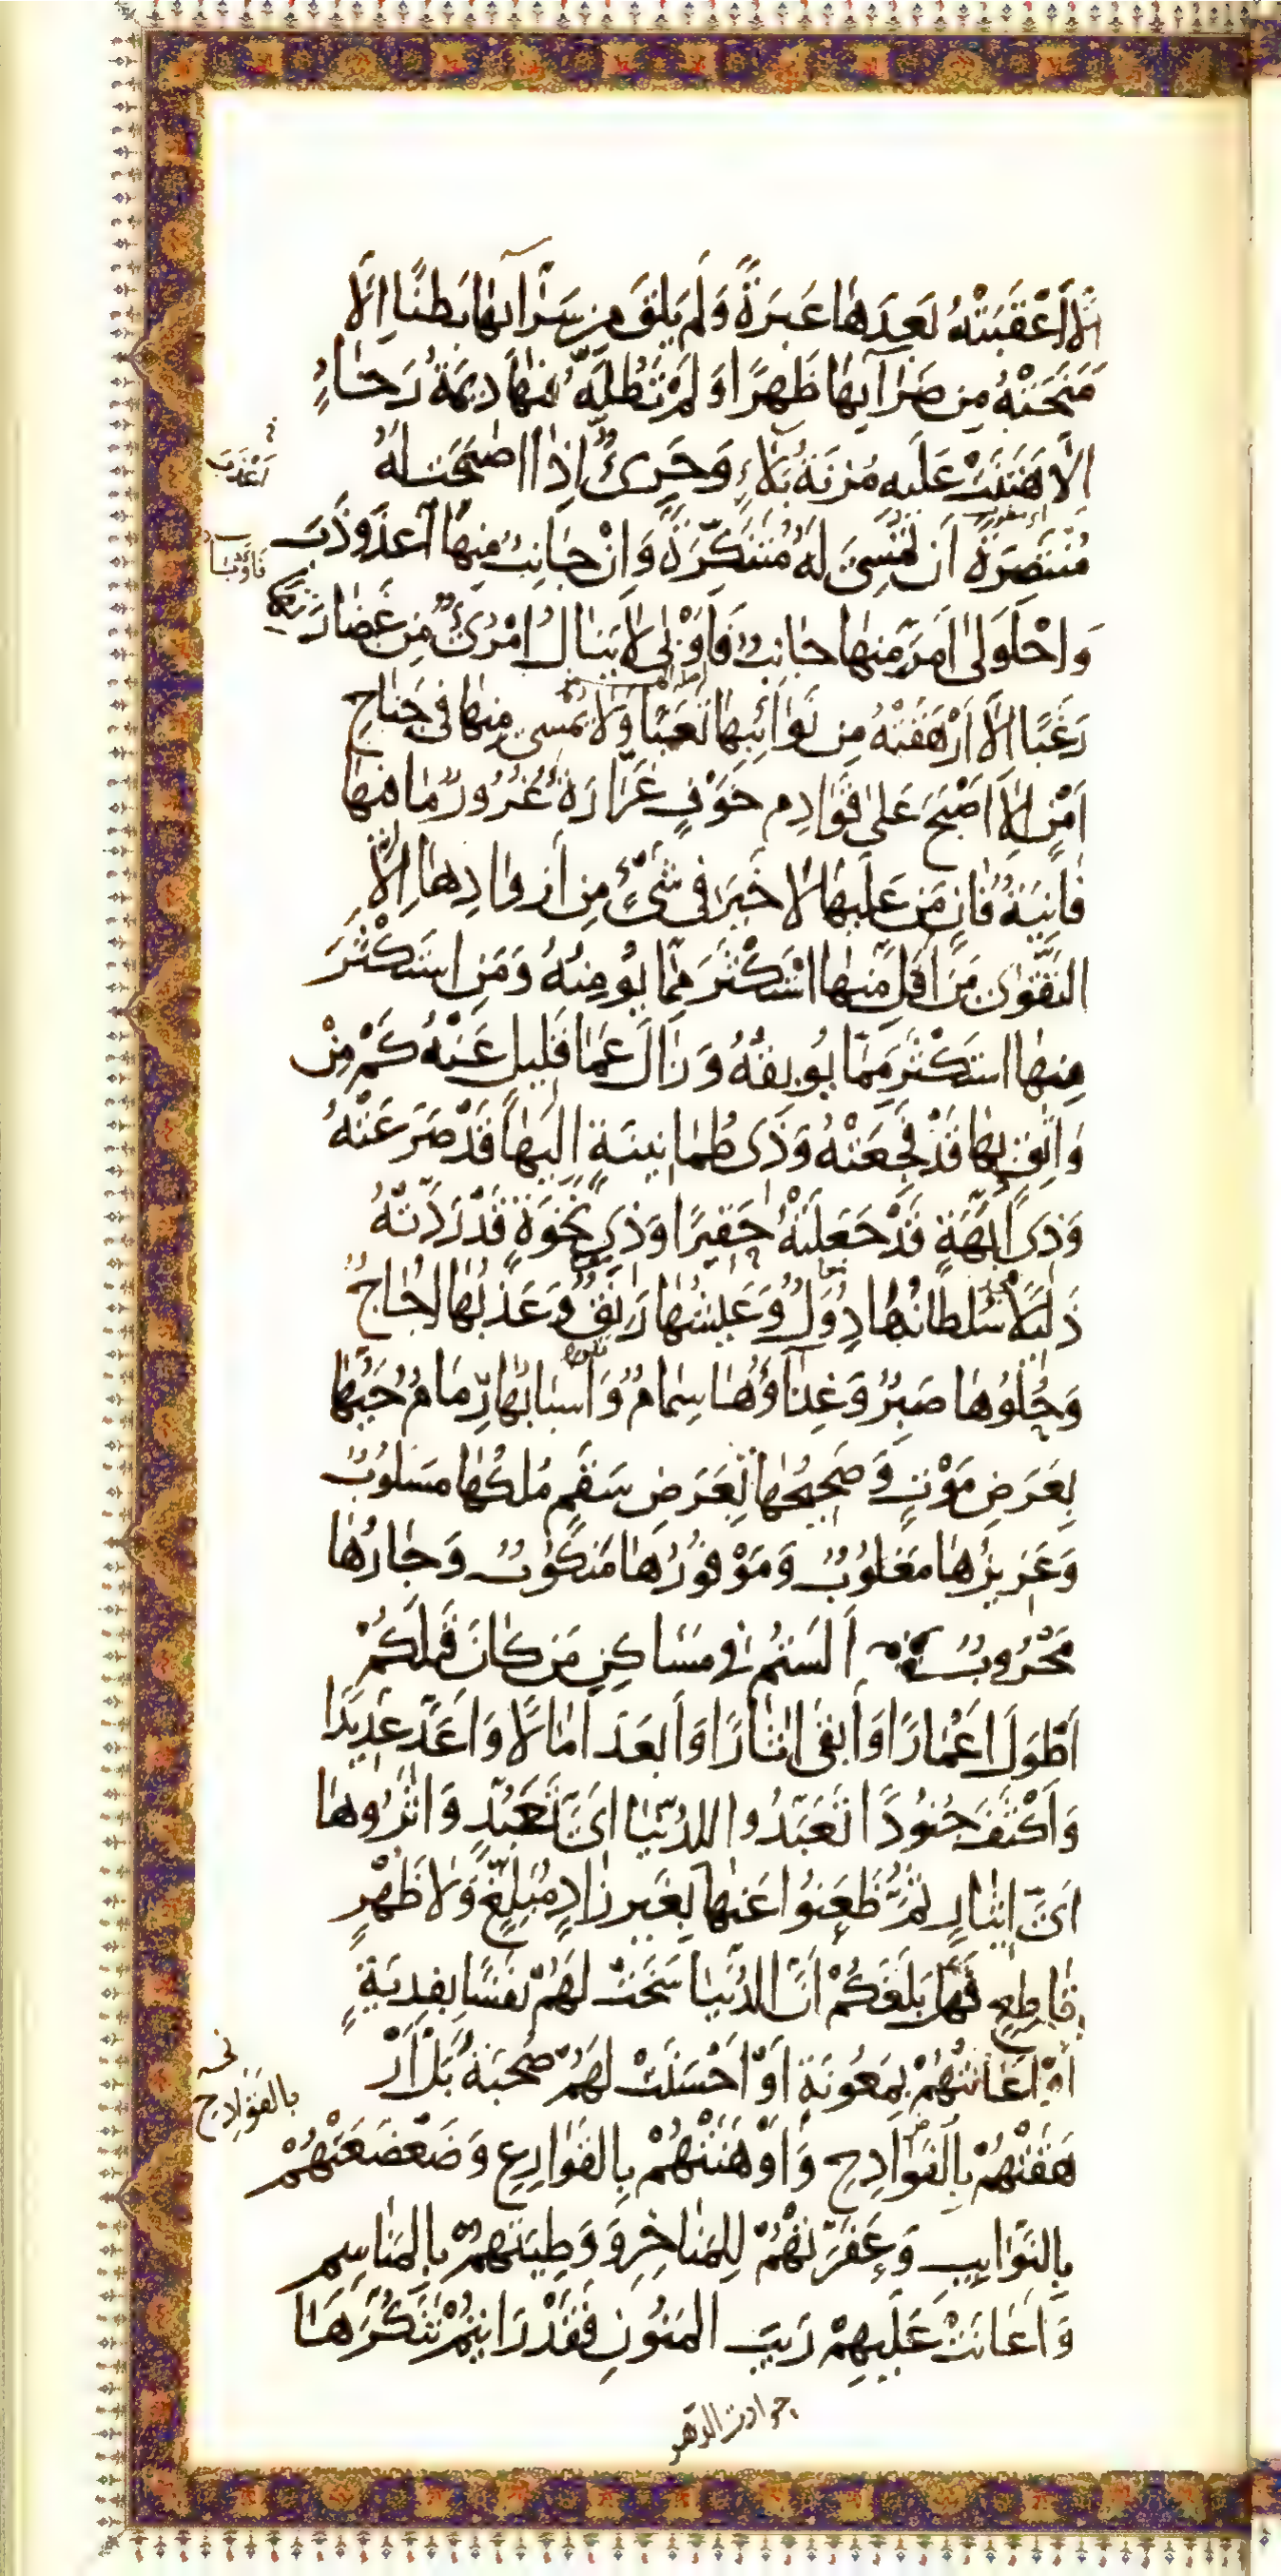 إلَّا أَعْقَبَتْهُ بَعْدَهَا عَبْرَةً وَلَمْ يَلْقَ مِن سَرَّائِهَا بَطْنًا إِلَّا
مَنَحَتْهُ مِن ضَرَّآئِهَا ظَهْرًا وَلَمْ تَطُلَّهُ فِيهَا دِيمَةُ رَخَاءٍ
إلَّا هَتَنَتْ عَلَيْهِ مُزْنَةُ بَلَاءٍ وَحَرِىٌّ إِذَا أَصْبَحَتْ لَهُ
مُنْتَصِرَةً أَن تُمْسِىَ لَهُ مُتَنَكِّرَةً وَإِنْ جَانِبٌ مِنْهَا اعْذَوْذَبَ
وَاحْلَوْلَىٰ أَمَرَّ مِنْهَا جَانِبٌ فَأَوْبَىٰ لَا يَنَالُ امْرُئٌ مِن غَضَارَتِهَا
رَغَبًا إِلَّا أَرْهَقَتْهُ مِن نَوَائِبِهَا تَعَبًا وَلَا يُمْسِى مِنْهَا فِى جَنَاحِ
أَمْنٍ إِلَّا أَصْبَحَ عَلَىٰ قَوَادِمِ خَوْفٍ غَرَّارَةٌ غُرُورٌ مَا فِيهَا
فَانِيَةٌ فَانٍ مَن عَلَيْهَا لَا خَيْرَ فِى شَىْءٍ مِن أَزْوَادِهَا إِلَّا
التَّقْوَىٰ مَن أَقَلَّ مِنْهَا اسْتَكْثَرَ مِمَّا يُؤْمِنُهُ وَمَنِ اسْتَكْثَرَ
مِنْهَا اسْتَكْثَرَ مِمَّا يُوبِقُهُ وَزَالَ عَمَّا قَلِيلٍ عَنْهُ كَمْ مِنْ
وَاثِقٍ بِهَا قَدْ فَجَعَتْهُ وَذِى طُمَأْنِينَةٍ إِلَيْهَا قَدْ صَرَعَتْهُ
وَذِى أُبَّهَةٍ قَدْ جَعَلَتْهُ حَقِيرًا وَذِى نَخْوَةٍ قَدْ رَدَّتْهُ
ذَلِيلًا سُلْطَانُهَا دُوَلٌ وَعَيْشُهَا رَنِقٌ وَعَذْبُهَا أُجَاجٌ
وَحُلْوُهَا صَبِرٌ وَغِذَآؤُهَا سِمَامٌ وَأَسْبَابُهَا رِمَامٌ حَيُّهَا
بِعَرَضِ مَوْتٍ وَصَحِيحُهَا بِعَرَضِ سَقَمٍ مُلْكُهَا مَسْلُوبٌ
وَعَزِيزُهَا مَغْلُوبٌ وَمَوْفُورُهَا مَنْكُوبٌ وَجَارُهَا
مَحْرُوبٌ أَلَسْتُمْ فِى مَسَاكِنِ مَن كَانَ قَبْلَكُمْ
أَطْوَلَ أَعْمَارًا وَأَبْقَىٰ اٰثَارًا وَأَبْعَدَ اٰمَالًا وَأَعَدَّ عَدِيدًا
وَأَكْثَفَ جُنُودًا تَعَبَّدُوا لِلدُّنْيَا أَىَّ تَعَبُّدٍ وَاٰثَرُوهَا
أَىَّ إِيثَارٍ ثُمَّ ظَعَنُوا عَنْهَا بِغَيْرِ زَادٍ مُبَلِّغٍ وَلَا ظَهْرٍ
قَاطِعٍ فَهَلْ بَلَغَكُمْ أَنَّ الدُّنْيَا سَخَتْ لَهُمْ نَفْسًا بِفِدْيَةٍ
أَوْ أَعَانَتْهُمْ بِمَعُونَةٍ أَوْ أَحْسَنَتْ لَهُمْ صُحْبَةً بَلْ أَرْ
هَقَتْهُمْ بِالْقَوَادِحِ وَأَوْهَنَتْهُمْ بِالْقَوَارِعِ وَضَعْضَعَتْهُمْ
بِالنَّوَايِبِ وَعَفَّرَتْهُمْ لِلْمَنَاخِرِ وَوَطِئَتْهُمْ بِالْمَنَاسِمِ
وَأَعَانَتْ عَلَيْهِمْ رَيْبَ الْمَنُونِ فَقَدْ رَأَيْتُمْ تَنَكُّرَهَا
حوادث الدهر